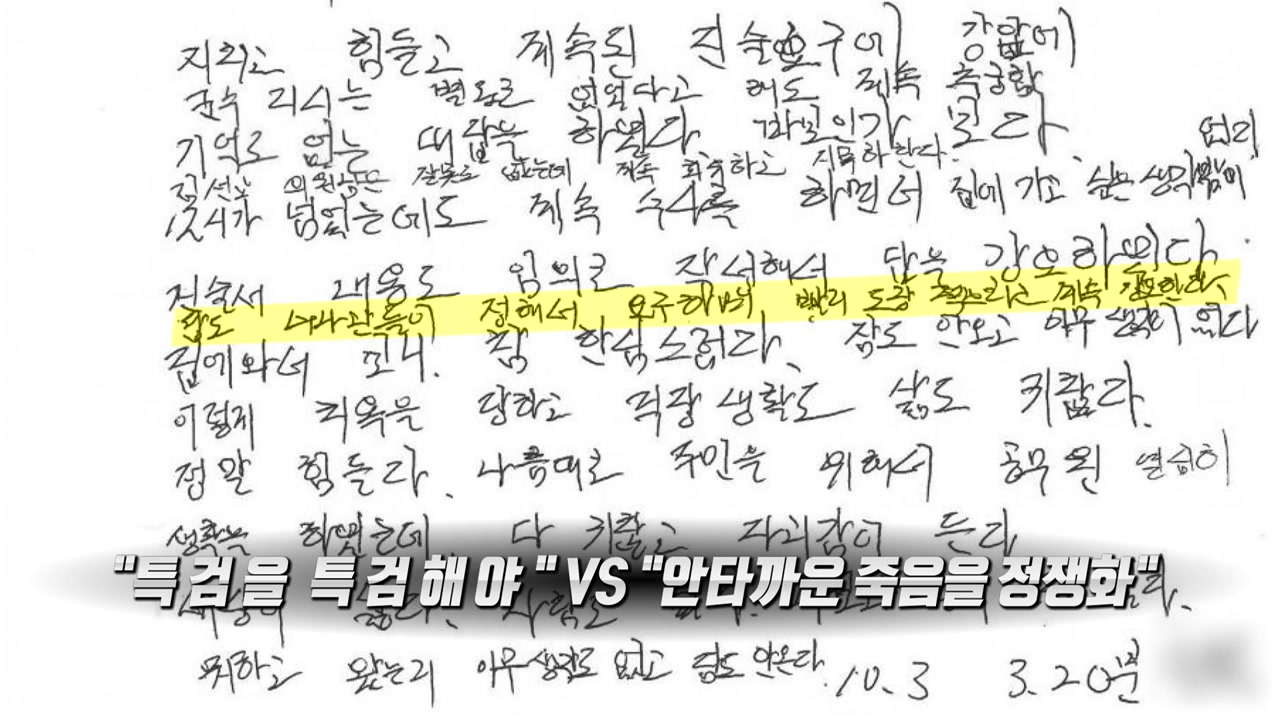 지치고 힘들고 계속된 진술요구에 강압에
군수 지시는 별도로 없었다고 해도 계속 추궁함
기억도 없는 대답을 하였다 바보인가 보다.
김선교 의원님은 잘못도 없는데 계속 회유하고 지목하란다.
12시가 넘었는데도 계속 수사를 하면서 집에 가고 싶은 생각밖에 없다
진술서 내용도 임의로 작성해서 답을 강요하였다.
답도 수사관들이 정해서 요구하며 빨리 도장 찍으라고 계속 강요한다.
집에 와서 보니 참 한심스럽다. 잠도 안오고 아무 생각이 없다
이렇게 치욕을 당하고 직장생활도 삶도 귀찮다.
정말 힘들다. 나름대로 주민을 위해서 공무원 열심히
생활을 하였는데 다 귀찮고 자괴감이 든다
"특검을 특검해야" VS "안타까운 죽음을 정쟁화"
세상이 싫다. 사람도
왔는지 아무 생각도 없고 잠도 안온다. 10.3 3.20분